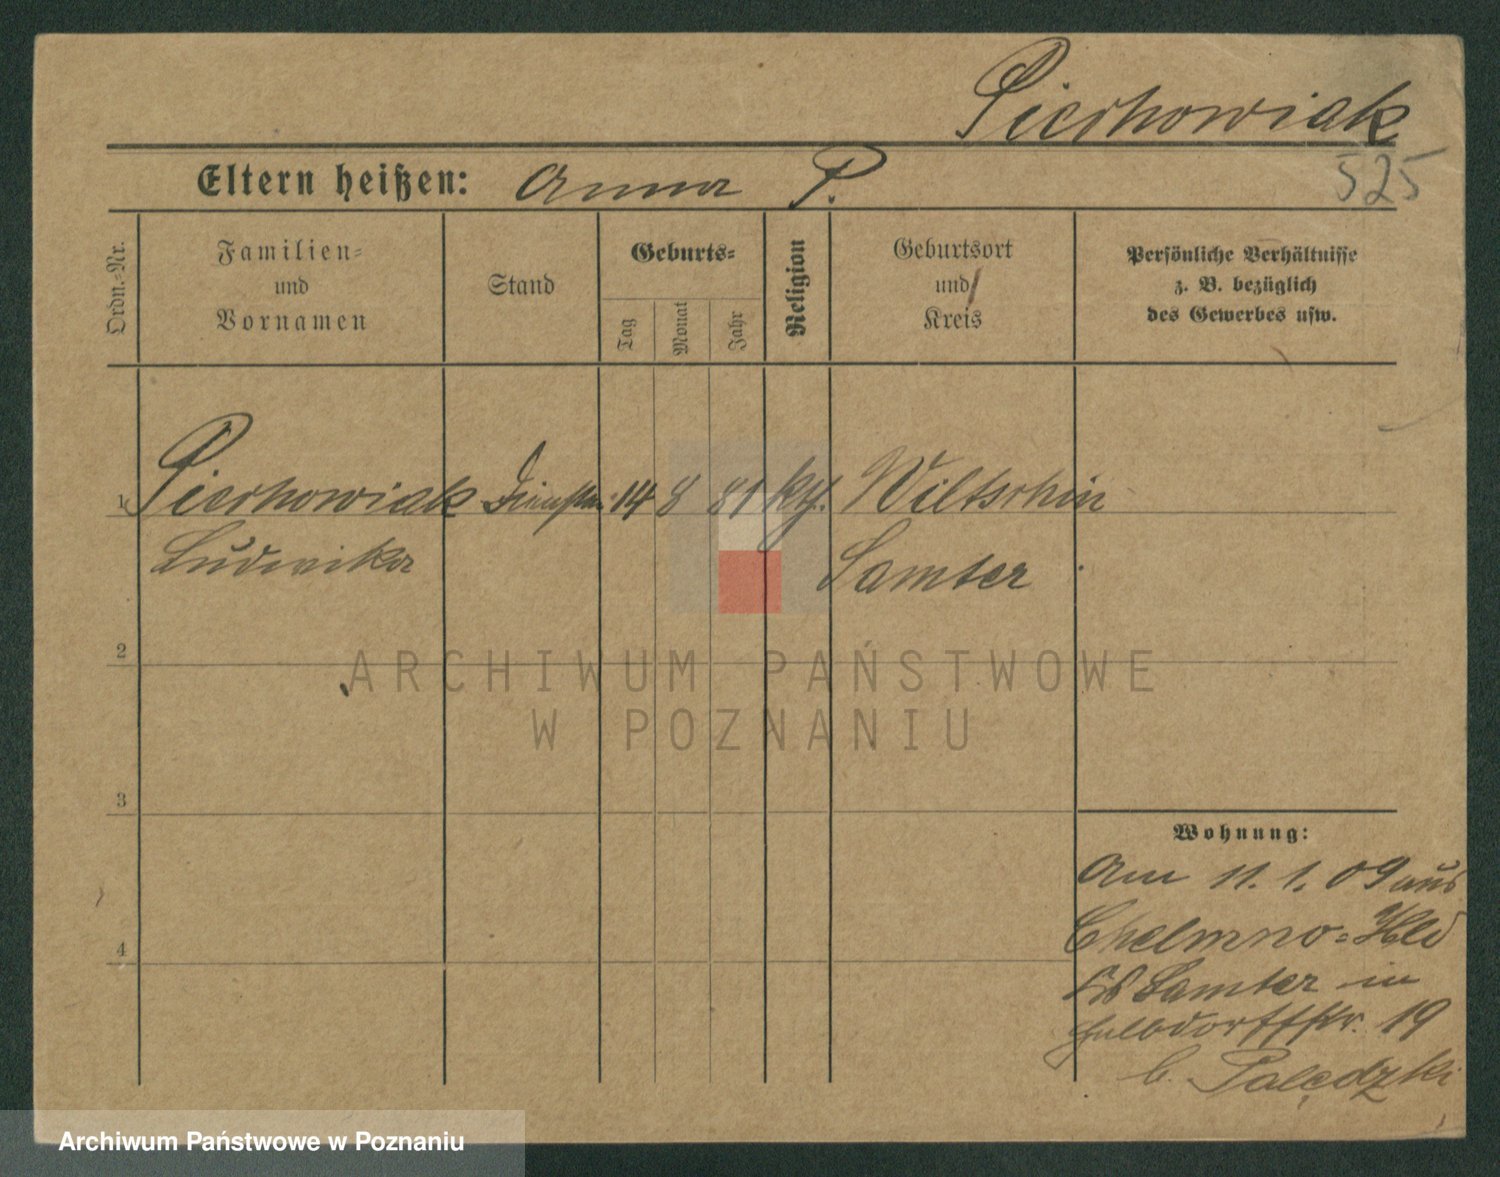 Piechowiak
525
Eltern heißen: Anna P.
Ordn.-Nr.
Familien-
und
Vornamen
Stand
Geburts-
Tag
Monat
Jahr
Religion
Geburtsort
und
Kreis
Persönliche Verhältnisse
z. B. bezüglich
des Gewerbes usw.
1 Piechowiak 14 8 81 kth. Wiltschin
Ludwika Samter
2
3
4
Wohnung:
Am 11. 1. 09 aus
Chelmno-Hld
Samter in
19
b. Palędzki
ARCHIWUM PAŃSTWOWE
W POZNANIU
Archiwum Państwowe w Poznaniu